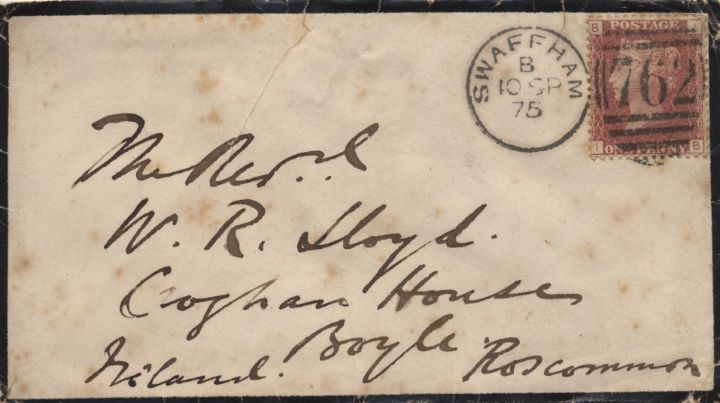 SWAFFHAM
B
10 SP
75
B I
POSTAGE
762
ONE PENNY
I B
The Revd.
W. R. Lloyd.
Coghan House
Boyle. Roscommon
Ireland.